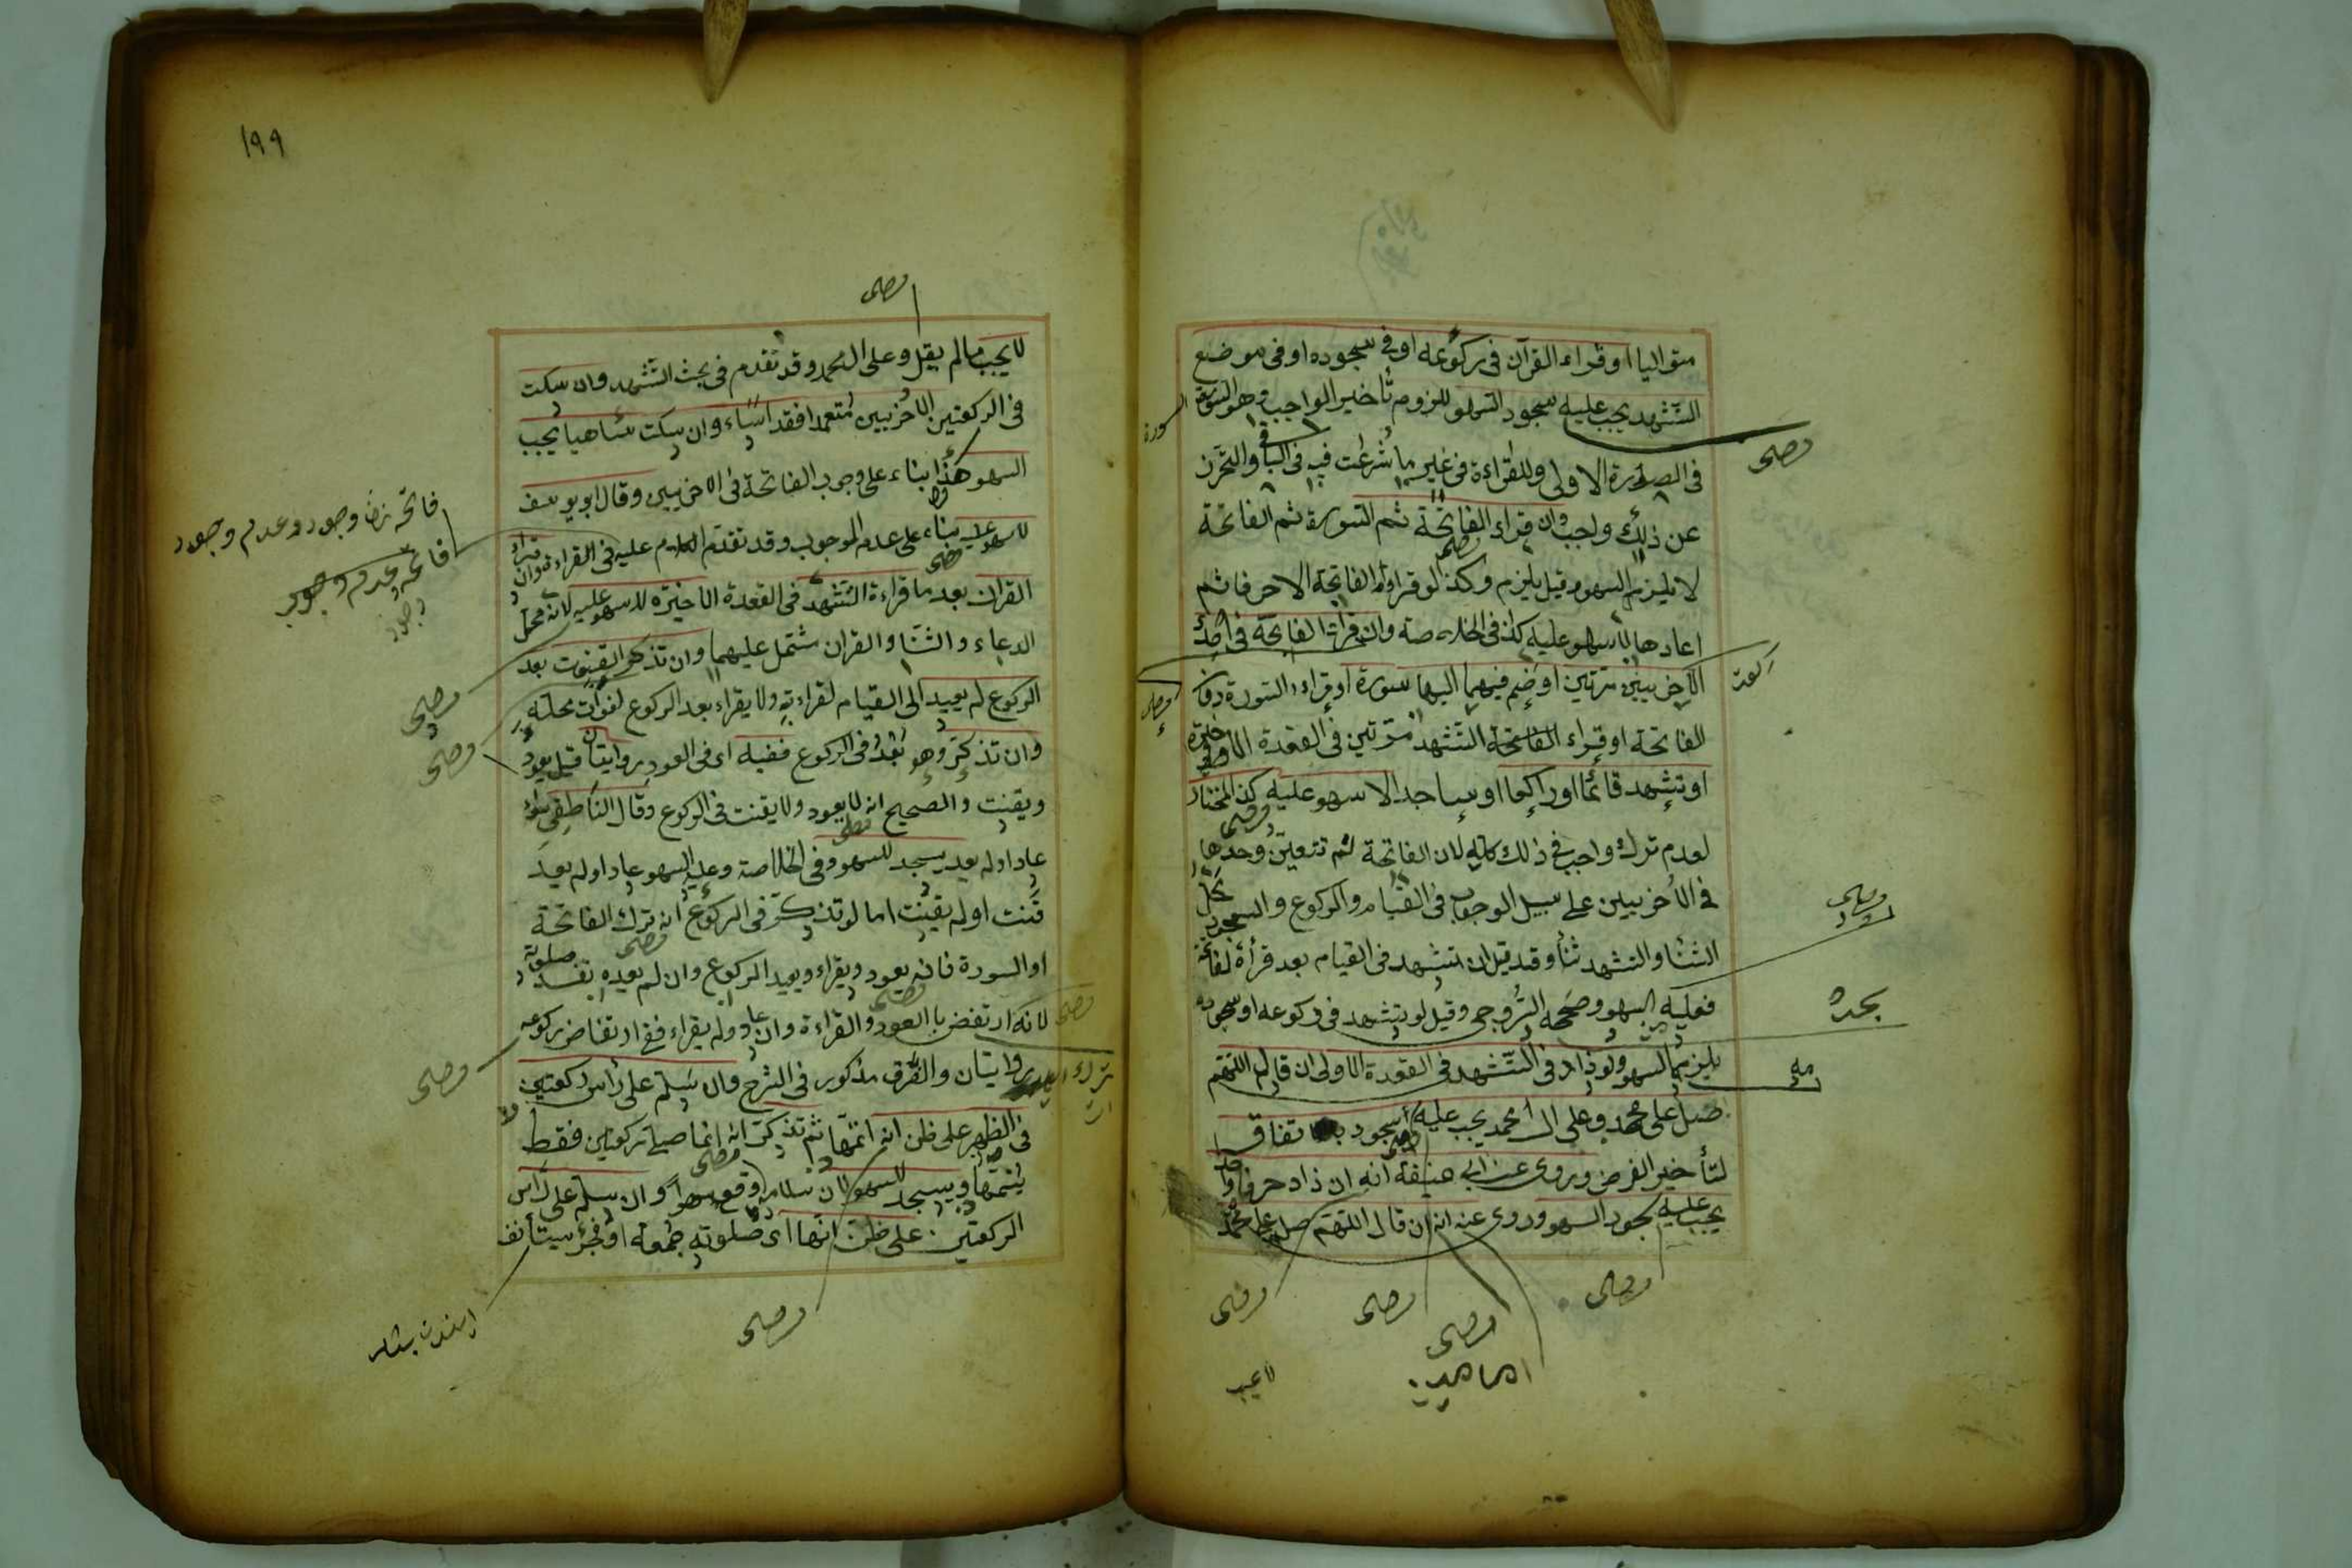 متواليا او قراء القرآن فى ركوعه او فى سجوده او فى موضع
التشهد يجب عليه سجود السهو للزوم تأخير الواجب وهو السورة
فى الصورة الاولى وللقراءة فى غير ما شرعت فيه فى البا والتحرز
عن ذلك واجب وان قراء الفاتحة ثم السورة ثم الفاتحة
لا يلزمه السهو وقيل يلزم وكذا لو قراء الفاتحة الا حرفا ثم
اعادها لا سهو عليه كذا فى الخلاصة وان قراء الفاتحة فى احدى
الاخريين مرتين او ضم فيهما اليها سورة او قراء السورة دون
الفاتحة او قراء الفاتحة التشهد مرتين فى القعدة الاخيرة
او تشهد قائما او راكعا او ساجدا لا سهو عليه كذا المختار
لعدم ترك واجب فى ذلك كله لان الفاتحة لم تتعين وحدها
فى الاخريين على سبيل الوجوب فى القيام والركوع والسجود محل
الثنا والتشهد ثنا وقد قيل ان تشهد فى القيام بعد قرأة الفاتحة
فعليه السهو وصححه السروجى وقيل لو يتشهد فى ركوعه او سجوده
يلزمه السهو ولو زاد فى التشهد فى القعدة الاولى ان قال اللهم
صل على محمد وعلى ال محمد يجب عليه سجود باتفاق
لتأخير الفرض وروى عن ابى حنيفة انه ان زاد حرفا واحدا
يجب عليه سجود السهو وروى عنه انه ان قال اللهم صل على محمد
وصلى
بجده
وصلى
وصلى
وصلى
وصلى
١٩٩
وصلى
لا يجب مالم يقل وعلى ال محمد وقد تقدم فى بحث التشهد وان سكت
فى الركعتين الاخريين متعمدا فقد اساء وان سكت ساهيا يجب
السهو هذا بناء على وجوب الفاتحة فى الاخريين وقال ابو يوسف
لا سهو عليه بناء على عدم الوجوب وقد تقدم الكلام عليه فى القراءة وان قراء
القران بعد ما قراءة التشهد فى القعدة الاخيرة لا سهو عليه لانه محل
الدعاء والثنا والقران شتمل عليهما وان تذكر القنوت بعد
الركوع لم يعيد الى القيام لقراءته ولا يقراء بعد الركوع لفوات محله
وان تذكر وهو بعد فى الركوع ففيه اى فى العود روايتان قيل يعود
ويقنت والصحيح انه لا يعود ولا يقنت فى الركوع وقال الناطفى سواء
عاد او لم يعد يسجد للسهو وفى الخلاصة وعليه السهو عاد او لم يعد
قنت او لم يقنت اما لو تذكر فى الركوع انه ترك الفاتحة
او السورة فانه يعود ويقراء ويعيد الركوع وان لم يعده تفسد صلوته
لانه ارتفض با العود والقراءة وان عاد ولم يقراء ففى ارتفاض ركوعه
روايتان والفرق مذكور فى الشرح وان سلم على راس ركعتين
فى الظهر على ظن انه اتمها ثم تذكر انه انما صلى ركعتين فقط
يتمها ويسجد للسهو لان سلامه وقع سهوا وان سلم على رأس
الركعتين على ظن انها اى صلوته جمعة او فجر يستأنف
وصلى
وصلى
وصلى
وصلى